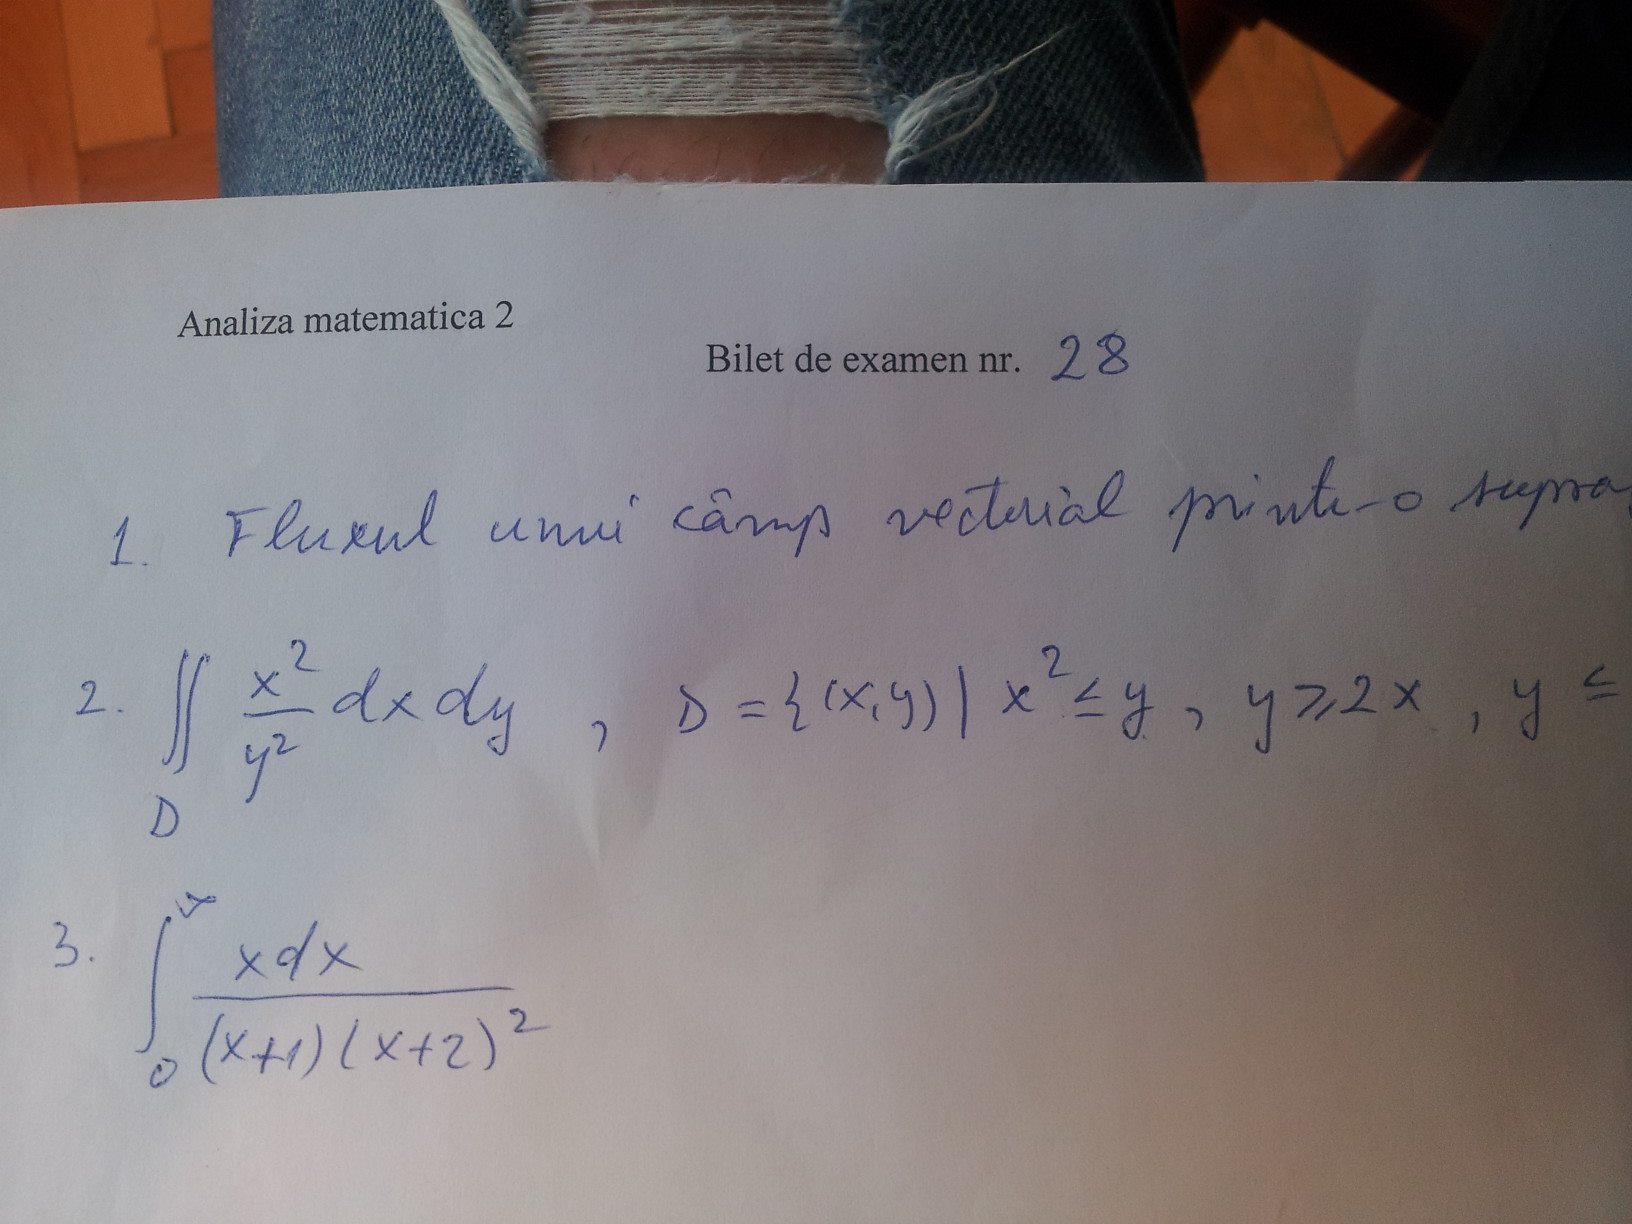 Analiza matematica 2
Bilet de examen nr. 28
1. Fluxul unui câmp vectorial printr-o supra
2. ∬_D x²/y² dx dy , D = {(x,y) | x² ≤ y , y ⩾ 2x , y ≤
3. ∫_0^∞ x dx / (x+1)(x+2)²